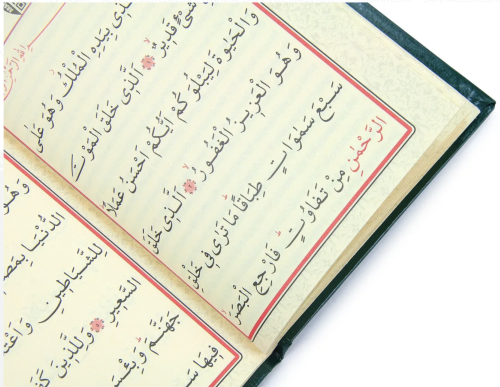 الَّذِى بِيَدِهِ الْمُلْكُ وَهُوَ عَلٰى
شَىْءٍ قَدِيرٌ ۞ اَلَّذِى خَلَقَ الْمَوْتَ
وَالْحَيٰوةَ لِيَبْلُوَكُمْ اَيُّكُمْ اَحْسَنُ عَمَلًا
وَهُوَ الْعَزِيزُ الْغَفُورُ ۞ اَلَّذِى خَلَقَ
سَبْعَ سَمٰوَاتٍ طِبَاقًا مَا تَرٰى فِى خَلْقِ
الرَّحْمٰنِ مِنْ تَفَاوُتٍ فَارْجِعِ الْبَصَرَ
وَهُوَ
الدُّنْيَا
لِلشَّيَاطِينِ
السَّعِيرِ ۞ وَلِلَّذِينَ
جَهَنَّمَ وَبِئْسَ
فِيهَا